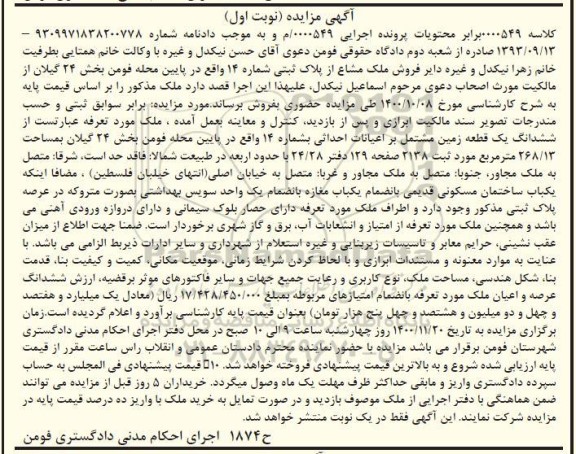 آگهی مزایده (نوبت اول)
کلاسه ۰۰۰۰۵۴۹برابر محتویات پرونده اجرایی ۰۰۰۰۵۴۹/م و به موجب دادنامه شماره ۹۳۰۹۹۷۱۸۳۸۲۰۰۷۷۸ –
۱۳۹۳/۰۹/۱۳ صادره از شعبه دوم دادگاه حقوقی فومن دعوی آقای حسن نیکدل و غیره با وکالت خانم همتایی بطرفیت
خانم زهرا نیکدل و غیره دایر فروش ملک مشاع از پلاک ثبتی شماره ۱۴ واقع در پایین محله فومن بخش ۲۴ گیلان از
مالکیت مورث اصحاب دعوی مرحوم اسماعیل نیکدل، علیهذا این اجرا قصد دارد ملک مذکور را بر اساس قیمت پایه
به شرح کارشناسی مورخ ۱۴۰۰/۱۰/۰۸ طی مزایده حضوری بفروش برساند.مورد مزایده: برابر سوابق ثبتی و حسب
مندرجات تصویر سند مالکیت ابرازی و پس از بازدید، کنترل و معاینه بعمل آمده ، ملک مورد تعرفه عبارتست از
ششدانگ یک قطعه زمین مشتمل بر اعیانات احداثی بشماره ۱۴ واقع در پایین محله فومن بخش ۲۴ گیلان بمساحت
۲۶۸/۱۳ مترمربع مورد ثبت ۲۱۳۸ صفحه ۱۲۹ دفتر ۲۴/۲۸ با حدود اربعه در طبیعت شمالا: فاقد حد است، شرقا: متصل
به ملک مجاور، جنوبا: متصل به ملک مجاور و غربا: متصل به خیابان اصلی(انتهای خیلبان فلسطین) ، مضافا اینکه
یکباب ساختمان مسکونی قدیمی بانضمام یکباب مغازه بانضمام یک واحد سویس بهداشتی بصورت متروکه در عرصه
پلاک ثبتی مذکور وجود دارد و اطراف ملک مورد تعرفه دارای حصار بلوک سیمانی و دارای دروازه ورودی آهنی می
باشد و همچنین ملک مورد تعرفه از امتیاز و انشعابات آب، برق و گاز شهری برخوردار است. ضمنا جهت اطلاع از میزان
عقب نشینی، حرایم معابر و تاسیسات زیربنایی و غیره استعلام از شهرداری و سایر ادارات ذیربط الزامی می باشد. با
عنایت به موارد معنونه و مستندات ابرازی و با لحاظ کردن شرایط زمانی، موقعیت مکانی، کمیت و کیفیت بنا، قدمت
بنا، شکل هندسی، مساحت ملک، نوع کاربری و رعایت جمیع جهات و سایر فاکتورهای موثر برقضیه، ارزش ششدانگ
عرصه و اعیان ملک مورد تعرفه بانضمام امتیازهای مربوطه بمبلغ ۱۷/۴۲۸/۴۵۰/۰۰۰ ریال (معادل یک میلیارد و هفتصد
و چهل و دو میلیون و هشتصد و چهل پنج هزار تومان) بعنوان قیمت پایه کارشناسی برآورد و اعلام گردیده است.زمان
برگزاری مزایده به تاریخ ۱۴۰۰/۱۱/۲۰ روز چهارشنبه ساعت ۹ الی ۱۰ صبح در محل دفتر اجرای احکام مدنی دادگستری
شهرستان فومن برقرار می باشد مزایده با حضور نماینده محترم دادستان عمومی و انقلاب راس ساعت مقرر از قیمت
پایه ارزیابی شده شروع و به بالاترین قیمت پیشنهادی فروخته خواهد شد. ۱۰٪ قیمت پیشنهادی فی المجلس به حساب
سپرده دادگستری واریز و مابقی حداکثر ظرف مهلت یک ماه وصول میگردد. خریداران ۵ روز قبل از مزایده می توانند
ضمن هماهنگی با دفتر اجرایی از ملک موصوف بازدید و در صورت تمایل به خرید ملک با واریز ده درصد قیمت پایه در
مزایده شرکت نمایند. این آگهی فقط در یک نوبت منتشر خواهد شد.
ح۱۸۷۴ اجرای احکام مدنی دادگستری فومن